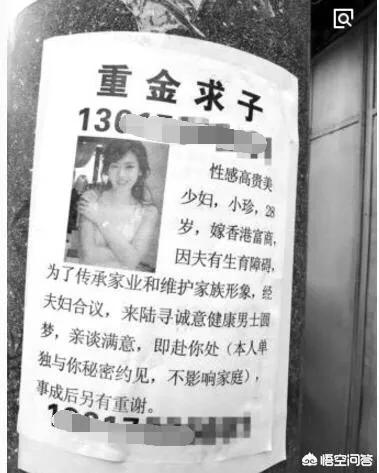 重金求子
130
性感高贵美
少妇，小珍，28
岁，嫁香港富商，
因夫有生育障碍，
为了传承家业和维护家族形象，经
夫妇合议，来陆寻诚意健康男士圆
梦，亲谈满意，即赴你处（本人单
独与你秘密约见，不影响家庭），
事成后另有重谢。
悟空问答